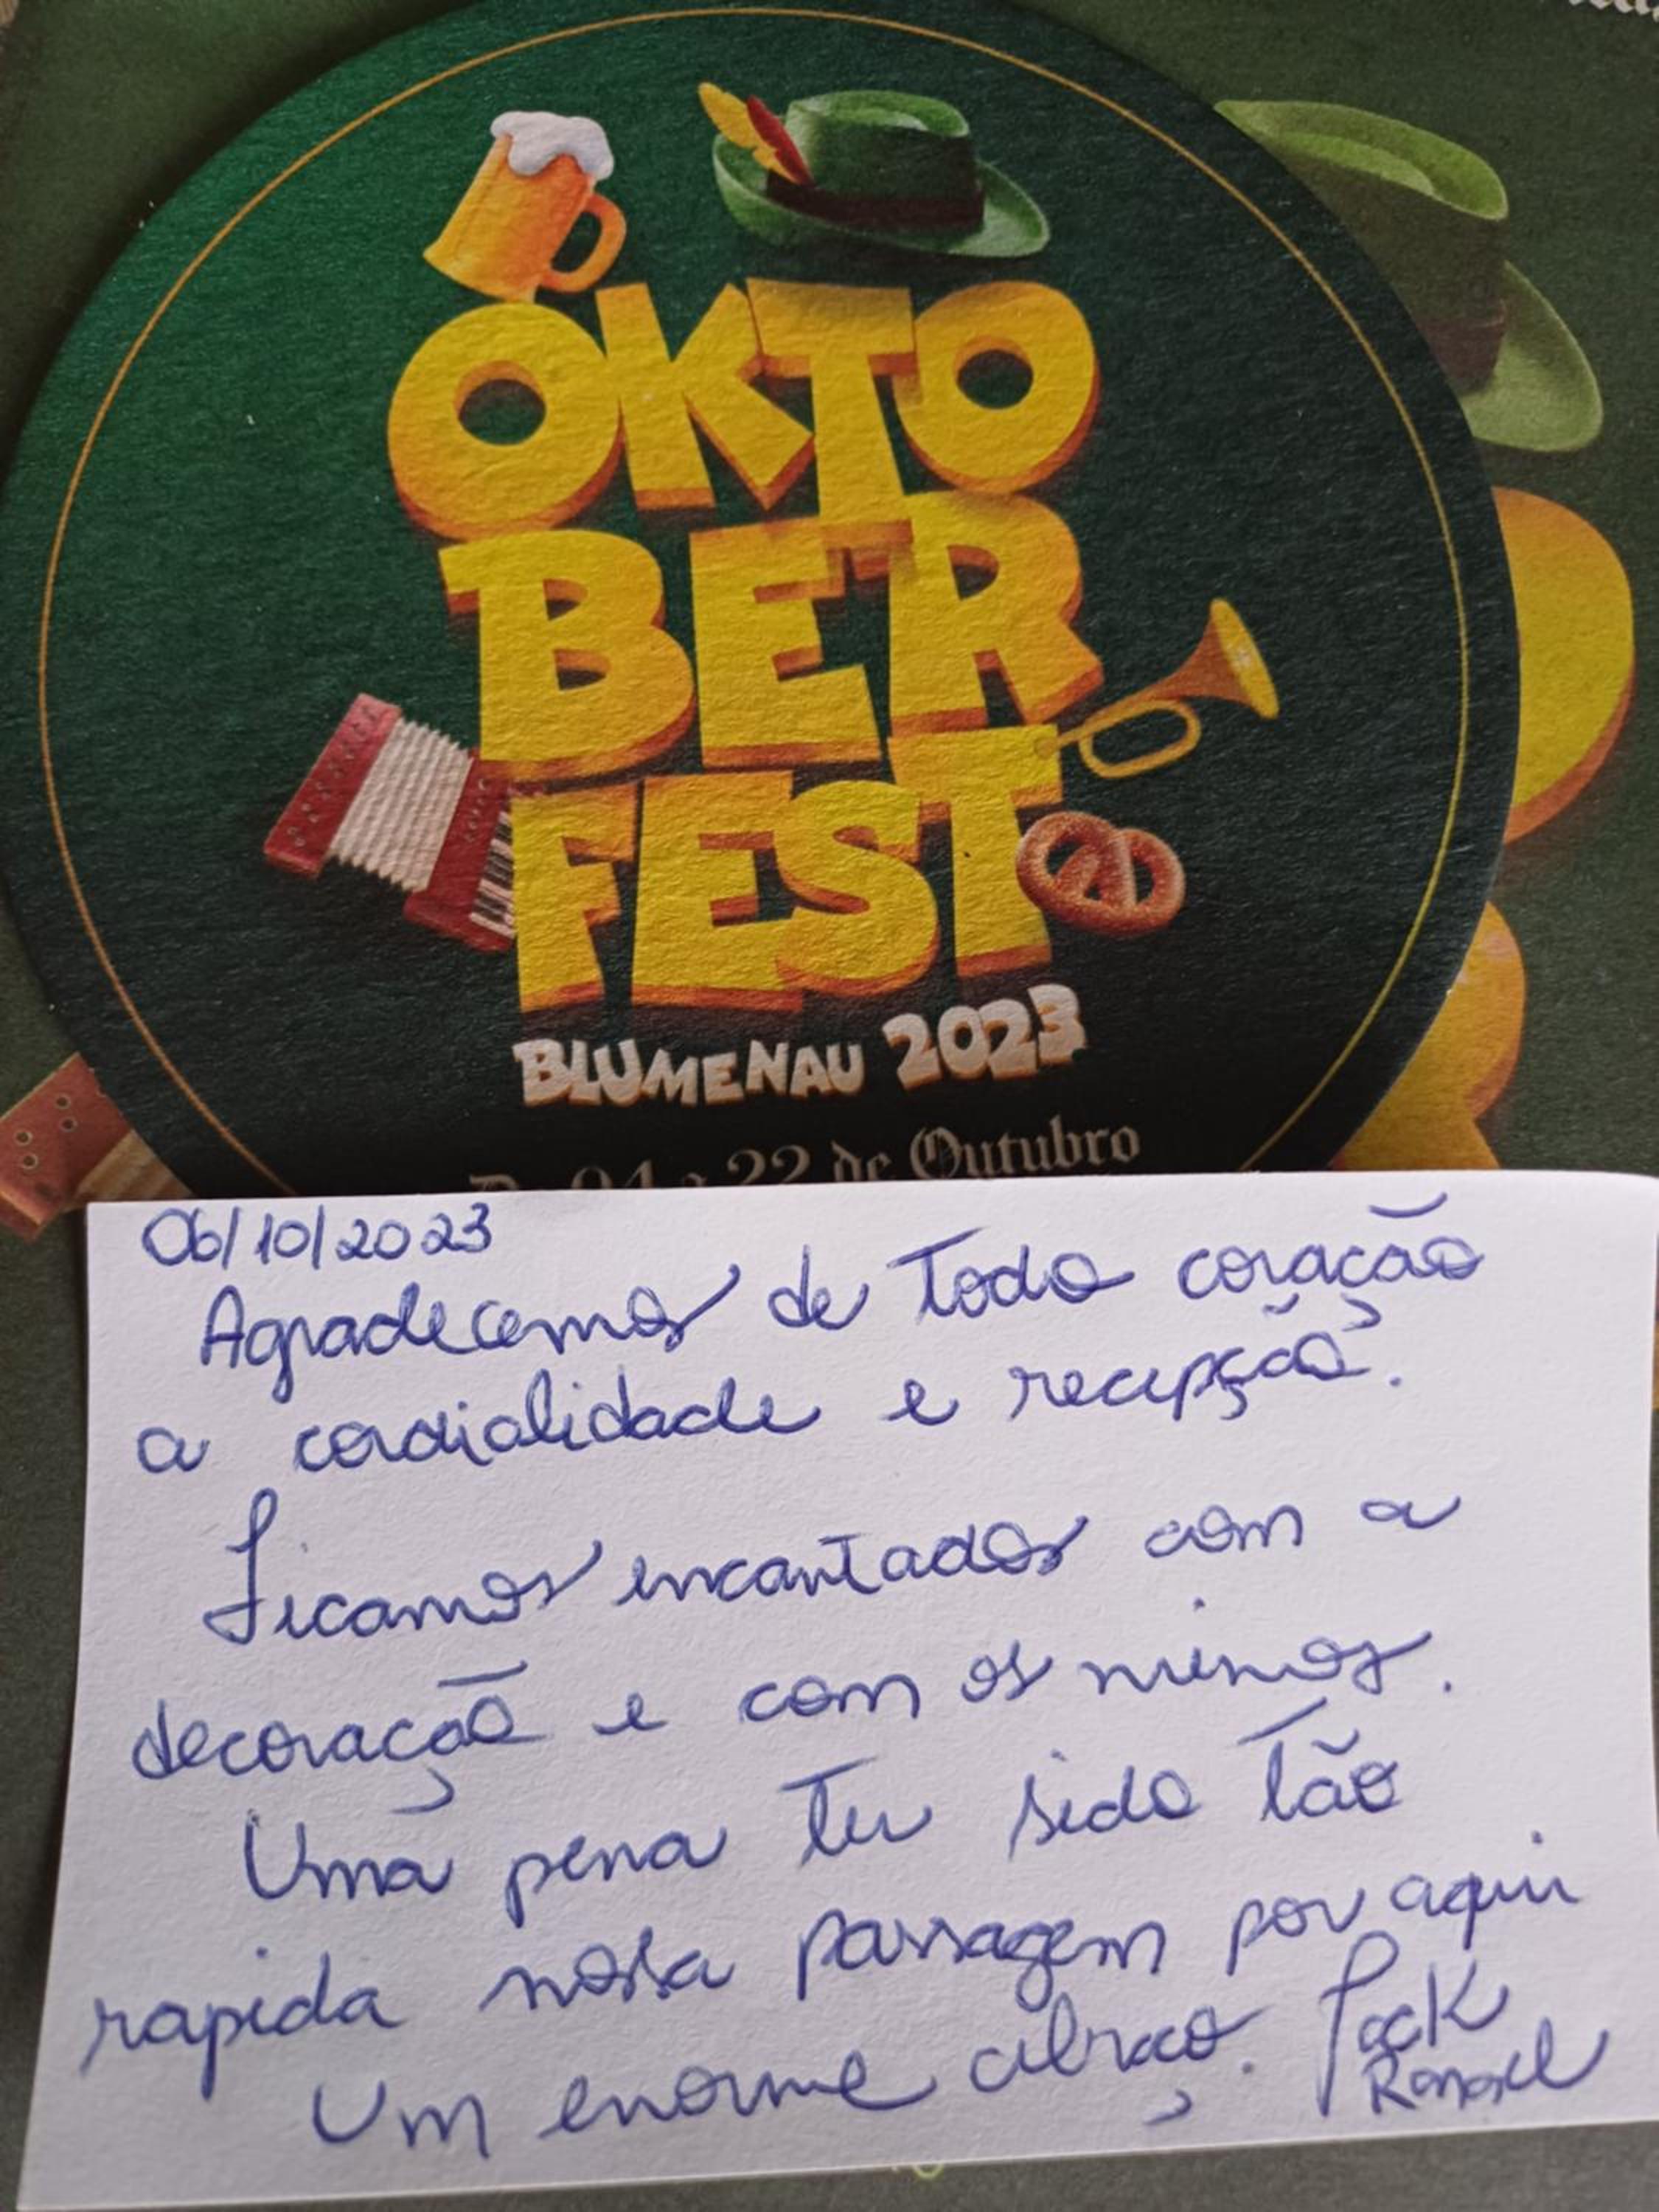 OKTO
BER
FEST
BLUMENAU 2023
De 04 a 22 de Outubro
06/10/2023
Agradecemos de todo coração
a cordialidade e recepção.
Ficamos encantados com a
decoração e com os mimos.
Uma pena ter sido tão
rapida nossa passagem por aqui
Um enorme abraço.